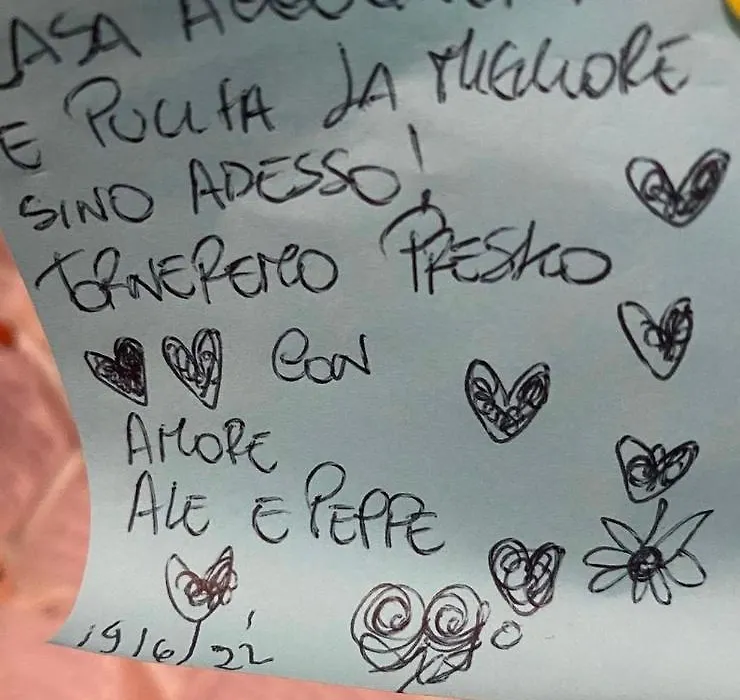 CASA ACCOGLIENTE
E PULITA LA MIGLIORE
SINO ADESSO!
TORNEREMO PRESTO
CON
AMORE
ALE E PEPPE
19/6/22